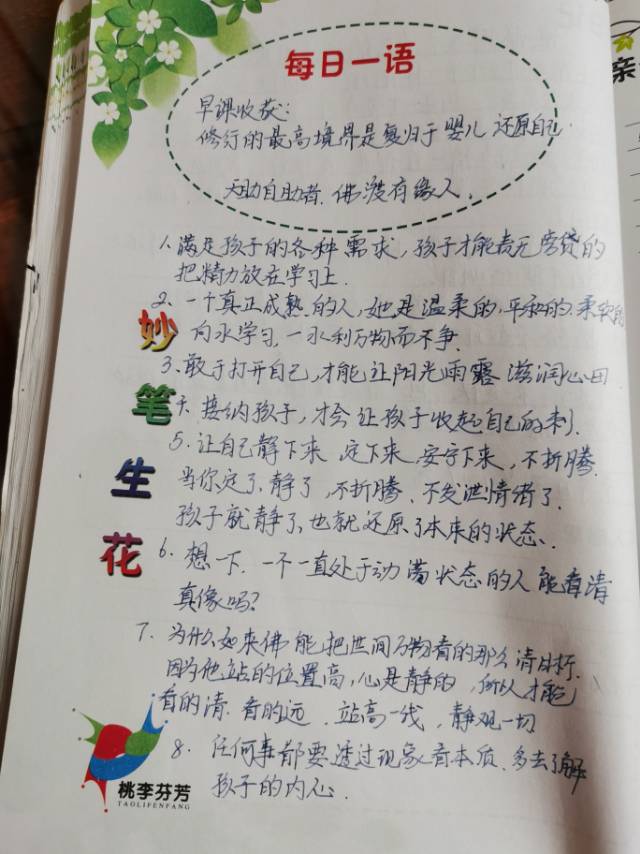 每日一语
早课收获:
修行的最高境界是复归于婴儿 还原自己.
天助自助者. 佛渡有缘人.
1. 满足孩子的各种需求, 孩子才能毫无
把精力放在学习上.
2、一个真正成熟的人, 她是温柔的, 平和的, 柔软的
向水学习, 一水利万物而不争
3. 敢于打开自己, 才能让阳光雨露 滋润心田.
4. 接纳孩子, 才会让孩子收起自己的刺.
5. 让自己静下来 定下来, 安宁下来, 不折腾.
当你定了、静了, 不折腾、不发泄情绪了.
孩子就静了, 也就还原了本来的状态.
6. 想一下. 一个一直处于动 状态的人 能看清
真像吗?
7. 为什么如来佛能把世间万物看的那么清晰.
因为他站的位置高, 心是静的, 所以才能
看的清. 看的远. 站高一线, 静观一切
8. 任何事都要透过现象看本质. 多去了解
孩子的内心.
妙笔生花
桃李芬芳
TAOLIFENFANG
亲